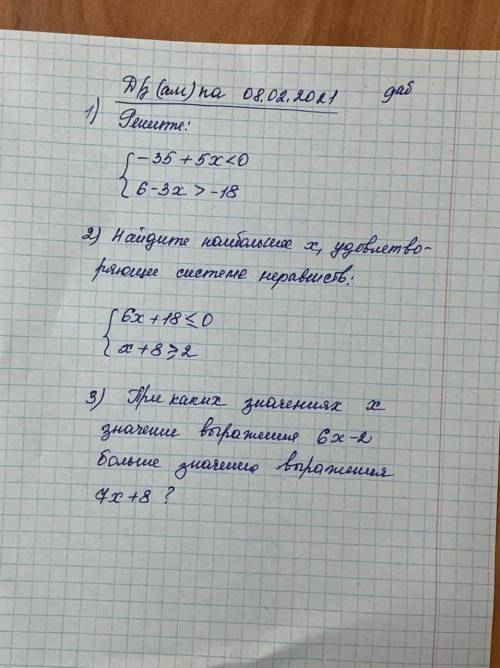 Д/з (ам) на 08.02.2021 даб
1) Решите:
-35 + 5x < 0
6 - 3x > -18
2) Найдите наибольшее x, удовлетво-
ряющее системе неравенств:
6x + 18 ≤ 0
x + 8 ≥ 2
3) При каких значениях x
значение выражения 6x - 2
больше значения выражения
7x + 8 ?